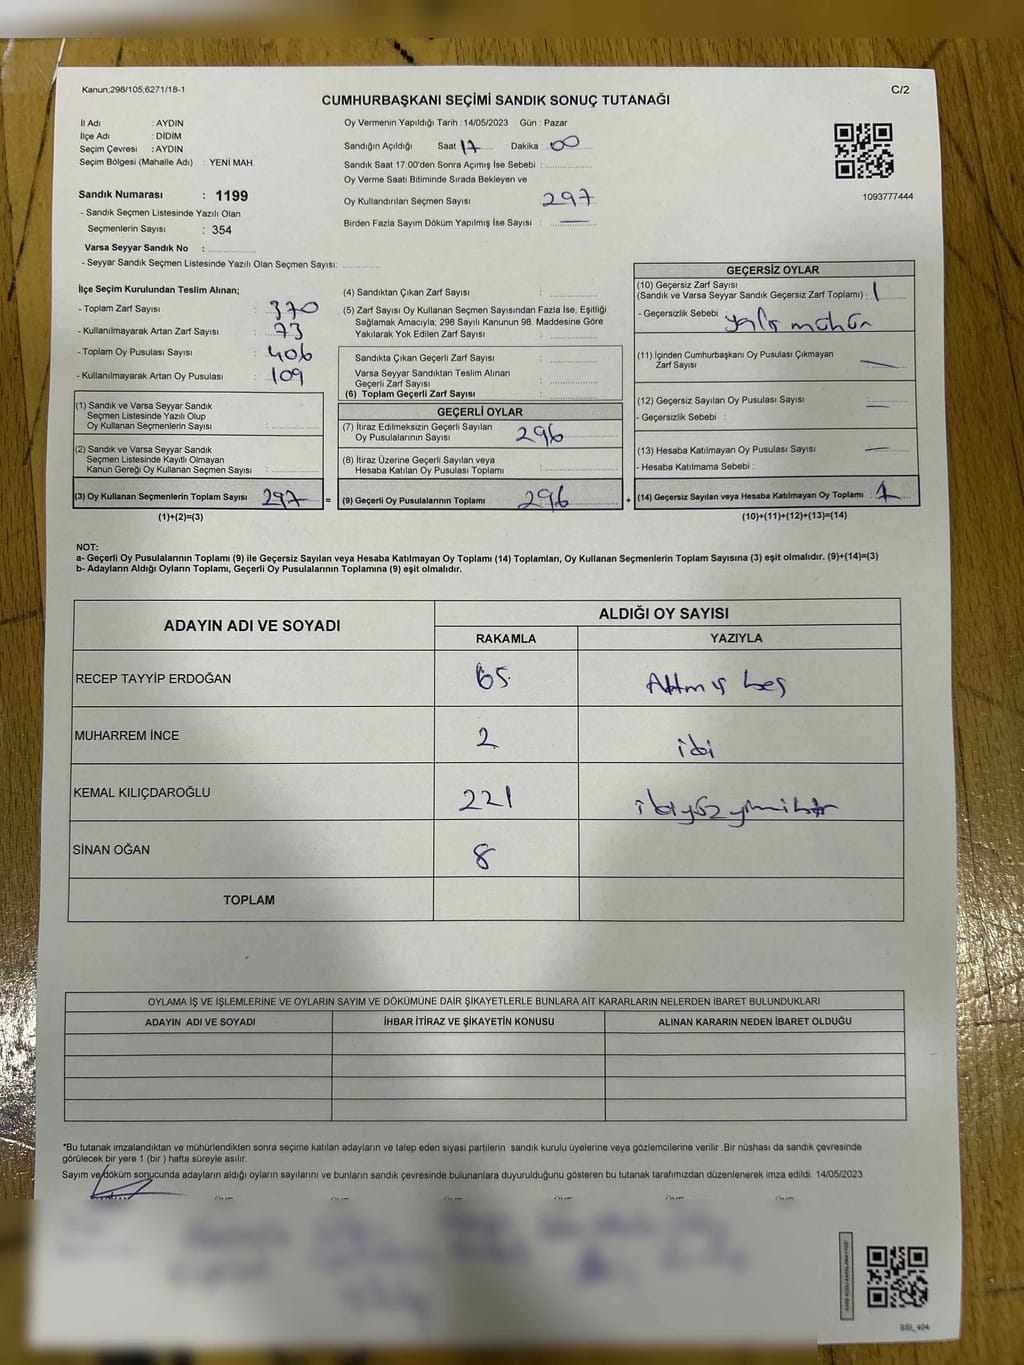 Kanun;298/105;6271/18-1
C/2
CUMHURBAŞKANI SEÇİMİ SANDIK SONUÇ TUTANAĞI
İl Adı : AYDIN
İlçe Adı : DİDİM
Seçim Çevresi : AYDIN
Seçim Bölgesi (Mahalle Adı) : YENİ MAH.
Sandık Numarası : 1199
- Sandık Seçmen Listesinde Yazılı Olan
Seçmenlerin Sayısı : 354
Varsa Seyyar Sandık No :
- Seyyar Sandık Seçmen Listesinde Yazılı Olan Seçmen Sayısı:
Oy Vermenin Yapıldığı Tarih : 14/05/2023 Gün : Pazar
Sandığın Açıldığı Saat 17 Dakika : 00
Sandık Saat 17:00'den Sonra Açımış İse Sebebi :
Oy Verme Saati Bitiminde Sırada Bekleyen ve
Oy Kullandırılan Seçmen Sayısı 297
Birden Fazla Sayım Döküm Yapılmış İse Sayısı : —
1093777444
İlçe Seçim Kurulundan Teslim Alınan;
- Toplam Zarf Sayısı : 370
- Kullanılmayarak Artan Zarf Sayısı : 73
- Toplam Oy Pusulası Sayısı : 406
- Kullanılmayarak Artan Oy Pusulası : 109
(1) Sandık ve Varsa Seyyar Sandık
Seçmen Listesinde Yazılı Olup
Oy Kullanan Seçmenlerin Sayısı :
(2) Sandık ve Varsa Seyyar Sandık
Seçmen Listesinde Kayıtlı Olmayan
Kanun Gereği Oy Kullanan Seçmen Sayısı :
(3) Oy Kullanan Seçmenlerin Toplam Sayısı 297 =
(1)+(2)=(3)
(4) Sandıktan Çıkan Zarf Sayısı :
(5) Zarf Sayısı Oy Kullanan Seçmen Sayısından Fazla İse, Eşitliği
Sağlamak Amacıyla; 298 Sayılı Kanunun 98. Maddesine Göre
Yakılarak Yok Edilen Zarf Sayısı :
Sandıkta Çıkan Geçerli Zarf Sayısı :
Varsa Seyyar Sandıktan Teslim Alınan
Geçerli Zarf Sayısı :
(6) Toplam Geçerli Zarf Sayısı :
GEÇERLİ OYLAR
(7) İtiraz Edilmeksizin Geçerli Sayılan
Oy Pusulalarının Sayısı 296
(8) İtiraz Üzerine Geçerli Sayılan veya
Hesaba Katılan Oy Pusulası Toplamı :
(9) Geçerli Oy Pusulalarının Toplamı 296 +
GEÇERSİZ OYLAR
(10) Geçersiz Zarf Sayısı
(Sandık ve Varsa Seyyar Sandık Geçersiz Zarf Toplamı) : 1
- Geçersizlik Sebebi : mühür
(11) İçinden Cumhurbaşkanı Oy Pusulası Çıkmayan
Zarf Sayısı —
(12) Geçersiz Sayılan Oy Pusulası Sayısı : —
- Geçersizlik Sebebi :
(13) Hesaba Katılmayan Oy Pusulası Sayısı : —
- Hesaba Katılmama Sebebi :
(14) Geçersiz Sayılan veya Hesaba Katılmayan Oy Toplamı : 1
(10)+(11)+(12)+(13)=(14)
NOT:
a- Geçerli Oy Pusulalarının Toplamı (9) ile Geçersiz Sayılan veya Hesaba Katılmayan Oy Toplamı (14) Toplamları, Oy Kullanan Seçmenlerin Toplam Sayısına (3) eşit olmalıdır. (9)+(14)=(3)
b- Adayların Aldığı Oyların Toplamı, Geçerli Oy Pusulalarının Toplamına (9) eşit olmalıdır.
ADAYIN ADI VE SOYADI ALDIĞI OY SAYISI
RAKAMLA YAZIYLA
RECEP TAYYİP ERDOĞAN 65 Altmış beş
MUHARREM İNCE 2 iki
KEMAL KILIÇDAROĞLU 221 ikiyüzyirmibir
SİNAN OĞAN 8
TOPLAM
OYLAMA İŞ VE İŞLEMLERİNE VE OYLARIN SAYIM VE DÖKÜMÜNE DAİR ŞİKAYETLERLE BUNLARA AİT KARARLARIN NELERDEN İBARET BULUNDUKLARI
ADAYIN ADI VE SOYADI İHBAR İTİRAZ VE ŞİKAYETİN KONUSU ALINAN KARARIN NEDEN İBARET OLDUĞU
*Bu tutanak imzalandıktan ve mühürlendikten sonra seçime katılan adayların ve talep eden siyasi partilerin sandık kurulu üyelerine veya gözlemcilerine verilir .Bir nüshası da sandık çevresinde
görülecek bir yere 1 (bir ) hafta süreyle asılır.
Sayım ve döküm sonucunda adayların aldığı oyların sayılarını ve bunların sandık çevresinde bulunanlara duyurulduğunu gösteren bu tutanak tarafımızdan düzenlenerek imza edildi. 14/05/2023
SSI_404